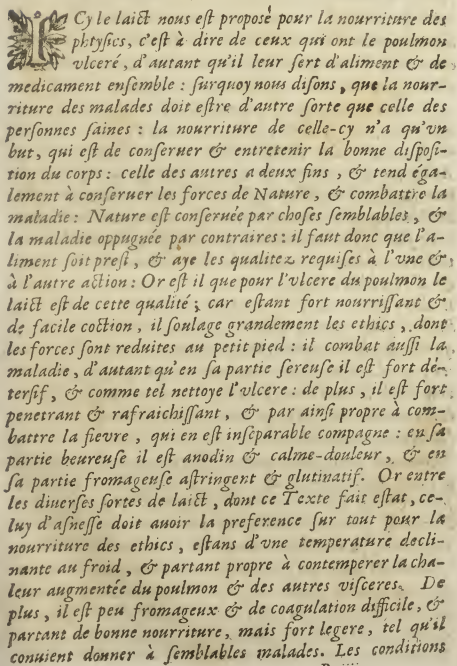 ICy le laict nous est proposé pour la nourriture des
phtysics, c'est à dire de ceux qui ont le poulmon
vlceré, d'autant qu'il leur sert d'aliment & de
medicament ensemble : surquoy nous disons, que la nour-
riture des malades doit estre d'autre sorte que celle des
personnes saines : la nourriture de celle-cy n'a qu'vn
but, qui est de conseruer & entretenir la bonne disposi-
tion du corps : celle des autres a deux fins, & tend éga-
lement à conseruer les forces de Nature, & combattre la
maladie : Nature est conseruée par choses semblables, &
la maladie oppugnée par contraires : il faut donc que l'a-
liment soit prest, & aye les qualitez requises à l'vne &
à l'autre action : Or est il que pour l'vlcere du poulmon le
laict est de cette qualité ; car estant fort nourrissant &
de facile coction, il soulage grandement les ethics, dont
les forces sont reduites au petit pied : il combat aussi la
maladie, d'autant qu'en sa partie sereuse il est fort dé-
tersif, & comme tel nettoye l'vlcere : de plus, il est fort
penetrant & rafraichissant, & par ainsi propre à com-
battre la fievre, qui en est inséparable compagne : en sa
partie beureuse il est anodin & calme-douleur, & en
sa partie fromageuse astringent & glutinatif. Or entre
les diuerses sortes de laict, dont ce Texte fait estat, ce-
luy d'asnesse doit auoir la preference sur tout pour la
nourriture des ethics, estans d'vne temperature decli-
nante au froid, & partant propre à contemperer la cha-
leur augmentée du poulmon & des autres visceres. De
plus, il est peu fromageux & de coagulation difficile, &
partant de bonne nourriture, mais fort legere, tel qu'il
conuient donner à semblables malades. Les conditions